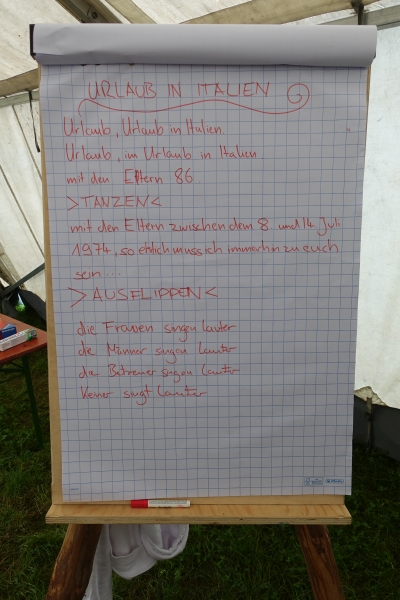 URLAUB IN ITALIEN
Urlaub, Urlaub in Italien
Urlaub, im Urlaub in Italien
mit den Eltern 86
>TANZEN<
mit den Eltern zwischen dem 8 und 14. Juli
1974, so ehrlich muss ich immerhin zu euch
sein ...
>AUSFLIPPEN<
die Frauen singen lauter
die Männer singen lauter
die Betreuer singen lauter
Keiner singt lauter